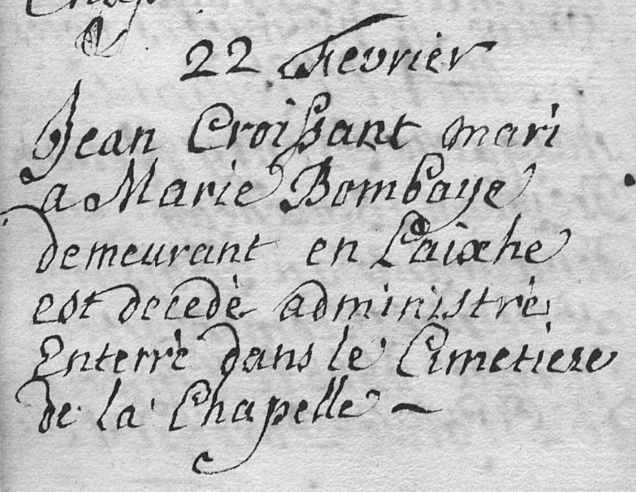 22 Fevrier
Jean Croissant mari
a Marie Bombaye
demeurant en Laixhe
est decedè administrè
Enterrè dans le Cimetiere
de la Chapelle